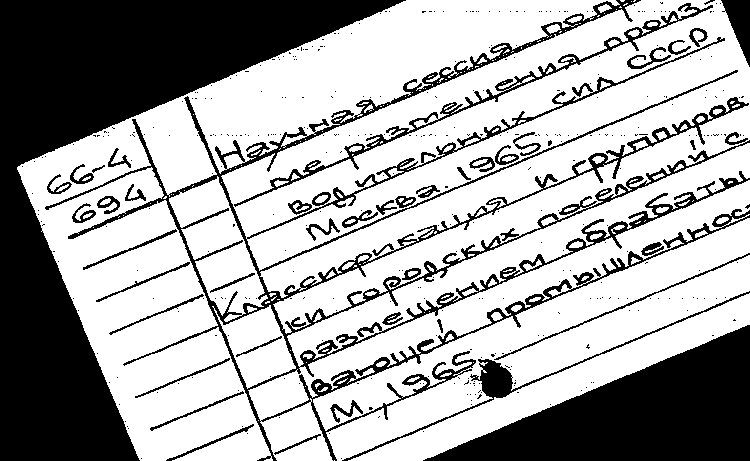 66-4
694
Научная сессия по
ме размещения произ-
водительных сил СССР.
Москва. 1965.
Классификация и группиров
ки городских поселений с
размещением обрабаты
вающей промышленнос
М., 1965.